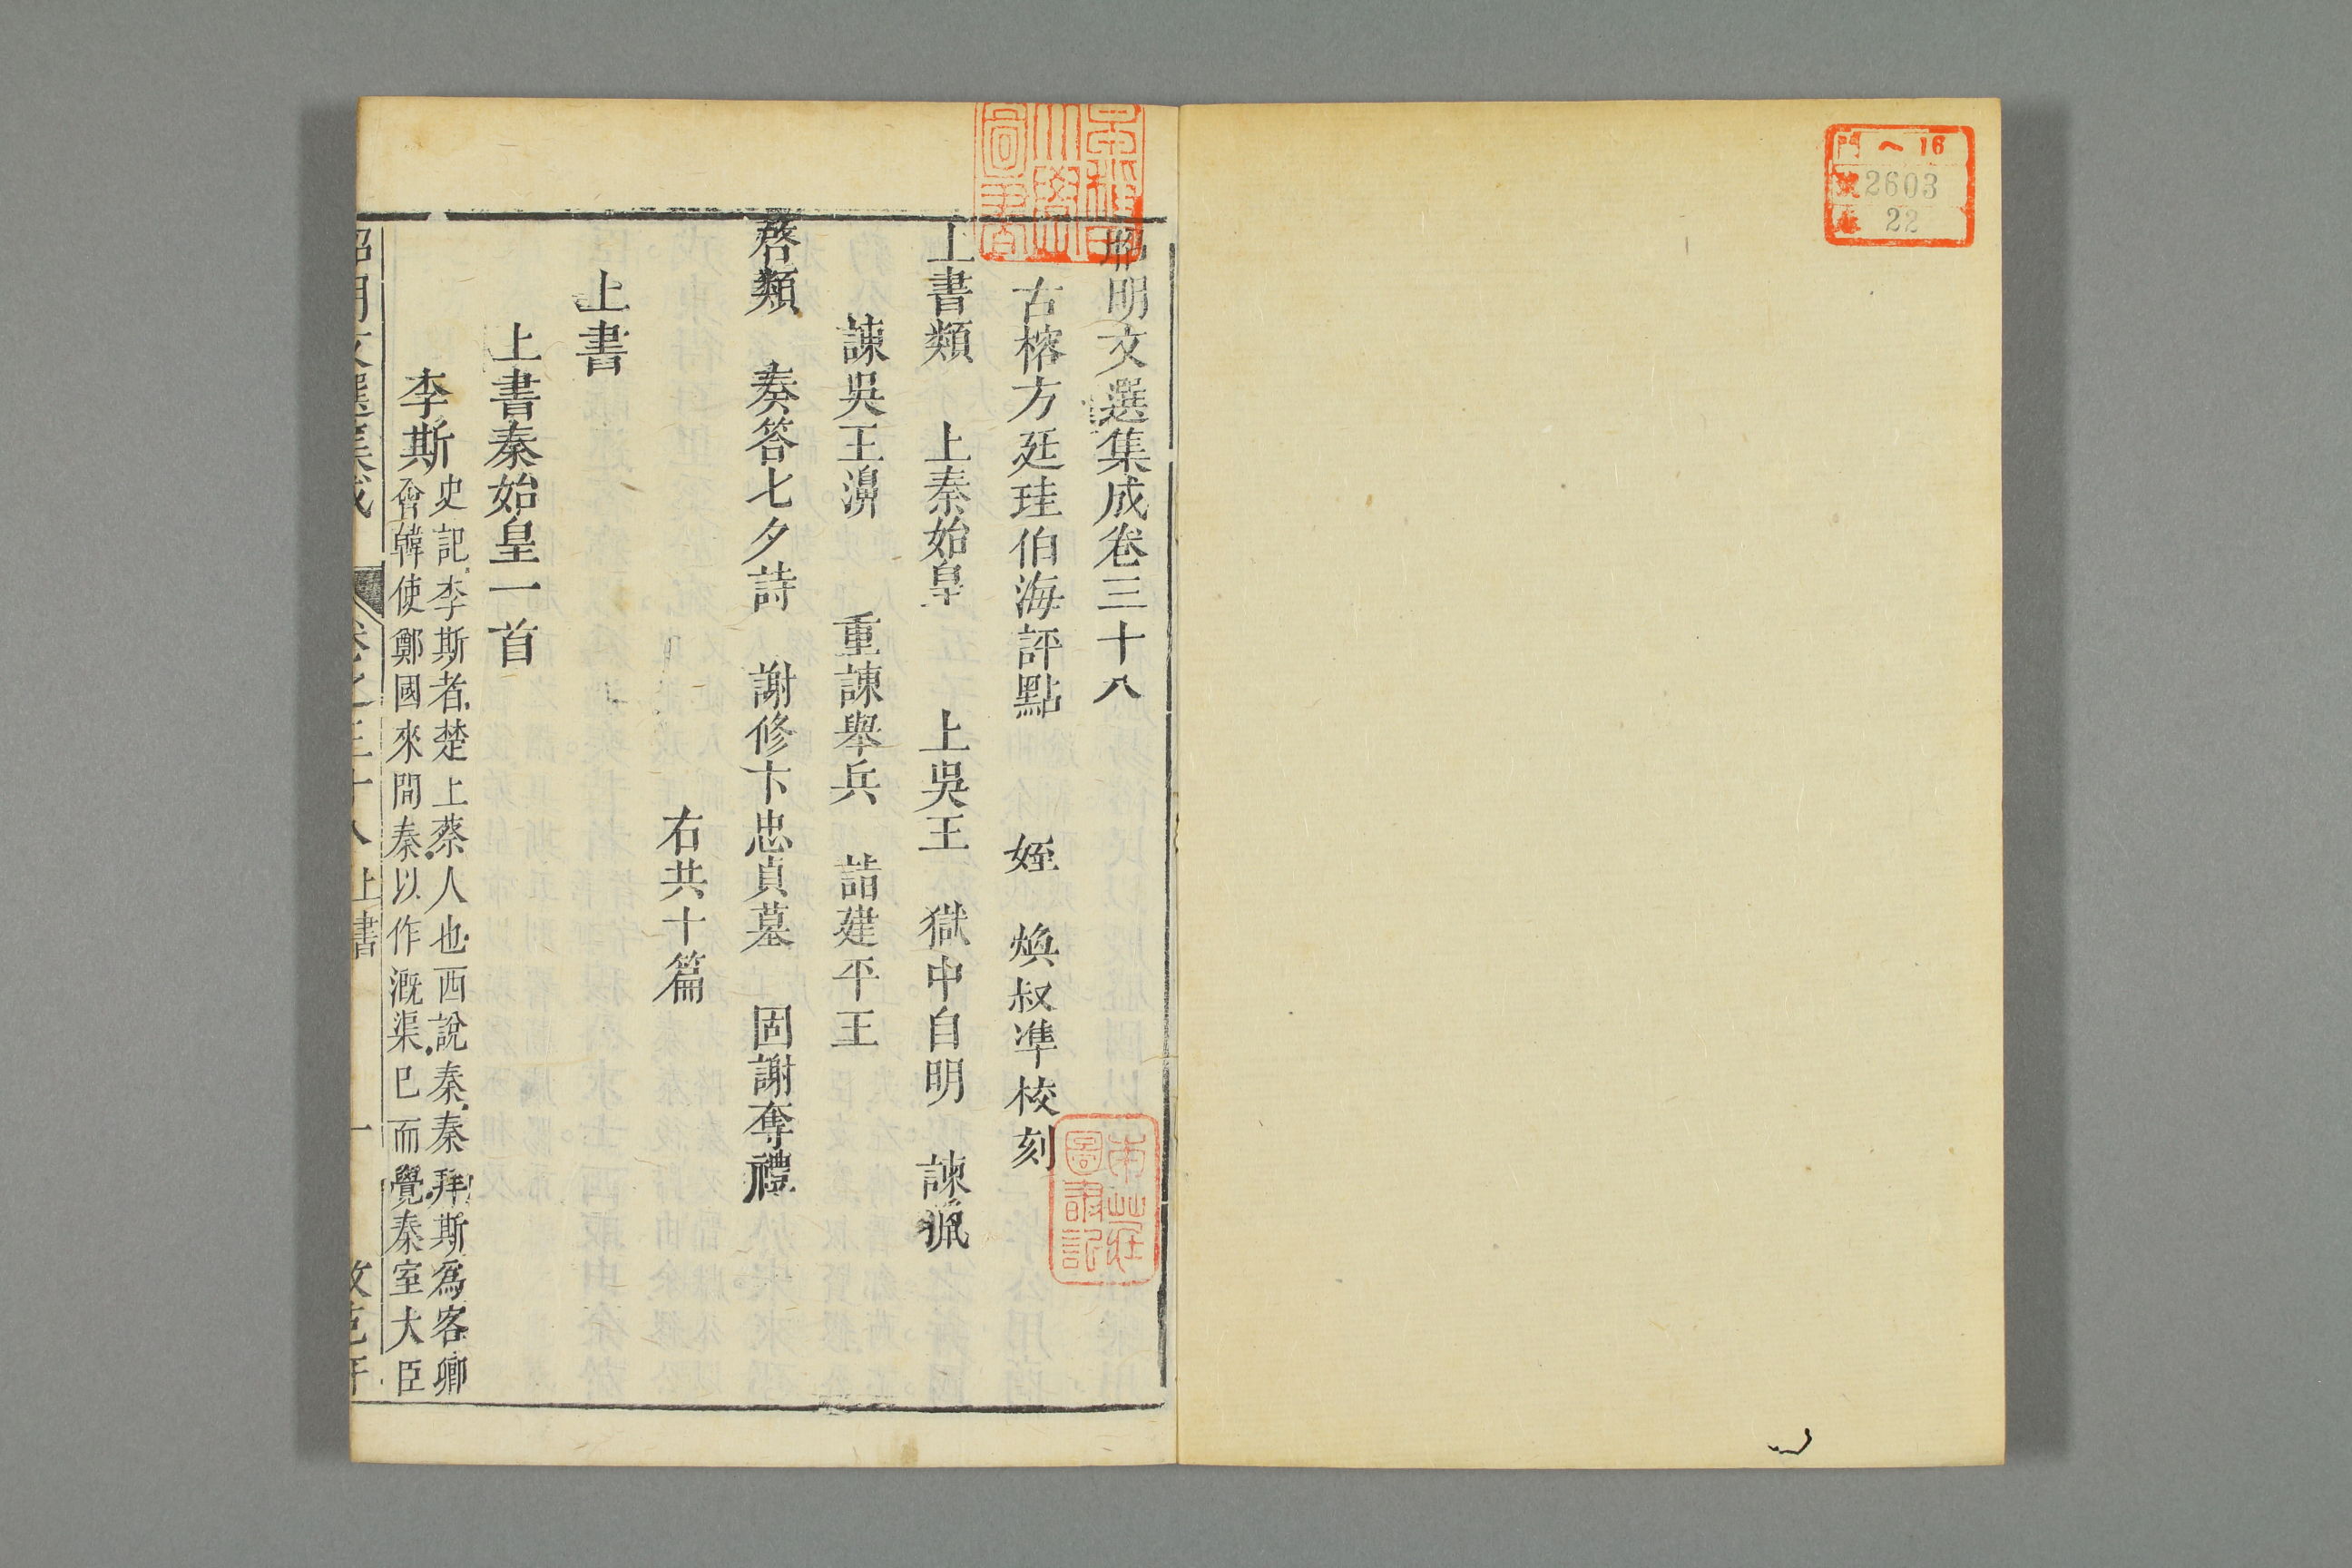 門 ヘ 16
號 2603
卷 22
早稲田大學圖書
昭明文選集成卷三十八
古榕方廷珪伯海評點 姪 煥叔準校刻
上書類 上秦始皇 上吳王 獄中自明 諫獵
諫吳王濞 重諫舉兵 詣建平王
啓類 奏答七夕詩 謝修卞忠貞墓 固謝奪禮
右共十篇
上書
上書秦始皇一首
李斯 史記李斯者楚上蔡人也西說秦秦拜斯爲客卿
會韓使鄭國來間秦以作漑渠已而覺秦室大臣
昭明文選集成 卷之三十八 上書 一
圖書記